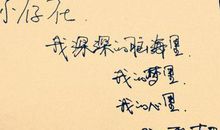 小仔在
我深深的脑海里
我的梦里
我的心里